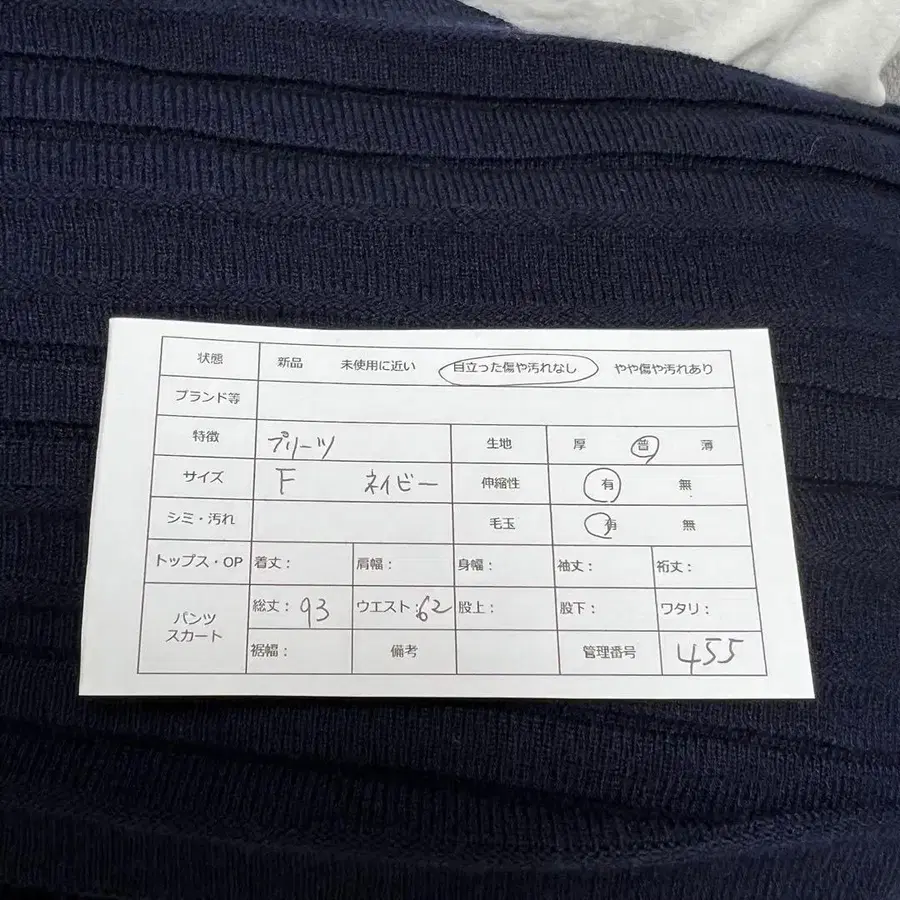 状態 新品 未使用に近い 目立った傷や汚れなし やや傷や汚れあり
ブランド等
特徴 プリーツ 生地 厚 普 薄
サイズ F ネイビー 伸縮性 有 無
シミ・汚れ 毛玉 有 無
トップス・OP 着丈: 肩幅: 身幅: 袖丈: 裄丈:
パンツ スカート 総丈: 93 ウエスト: 62 股上: 股下: ワタリ:
裾幅: 備考 管理番号 455